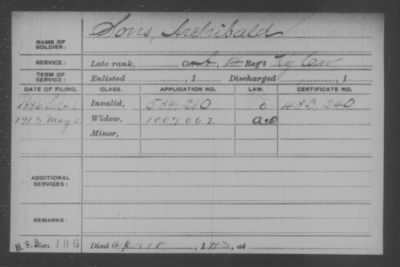 Sons, Archibald
NAME OF
SOLDIER:
SERVICE: Late rank, Co. A, 1st Reg't Ky Cav
TERM OF
SERVICE: Enlisted , 1 Discharged , 1
DATE OF FILING. CLASS. APPLICATION NO. LAW. CERTIFICATE NO.
Invalid, 584,210 483,240
1913 May 2 Widow, 1007062
Minor,
ADDITIONAL
SERVICES:
REMARKS:
186 Died Apr 18, 1913, at